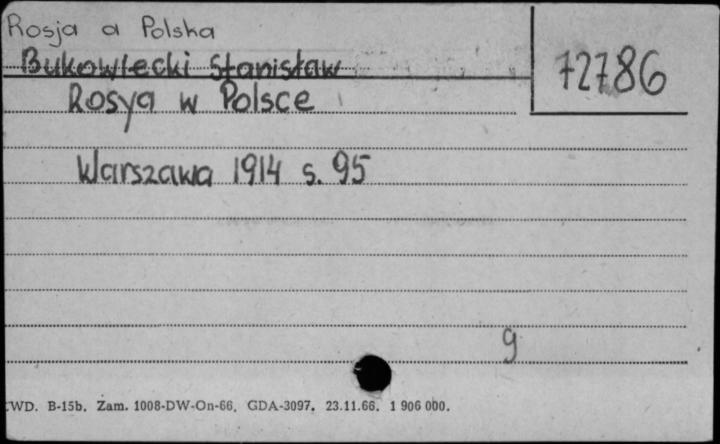 Rosja a Polska
72786
Bukowiecki Stanisław
Rosya w Polsce
Warszawa 1914 s. 95
9
CWD. B-15b. Zam. 1008-DW-On-66. GDA-3097. 23.11.66. 1 906 000.